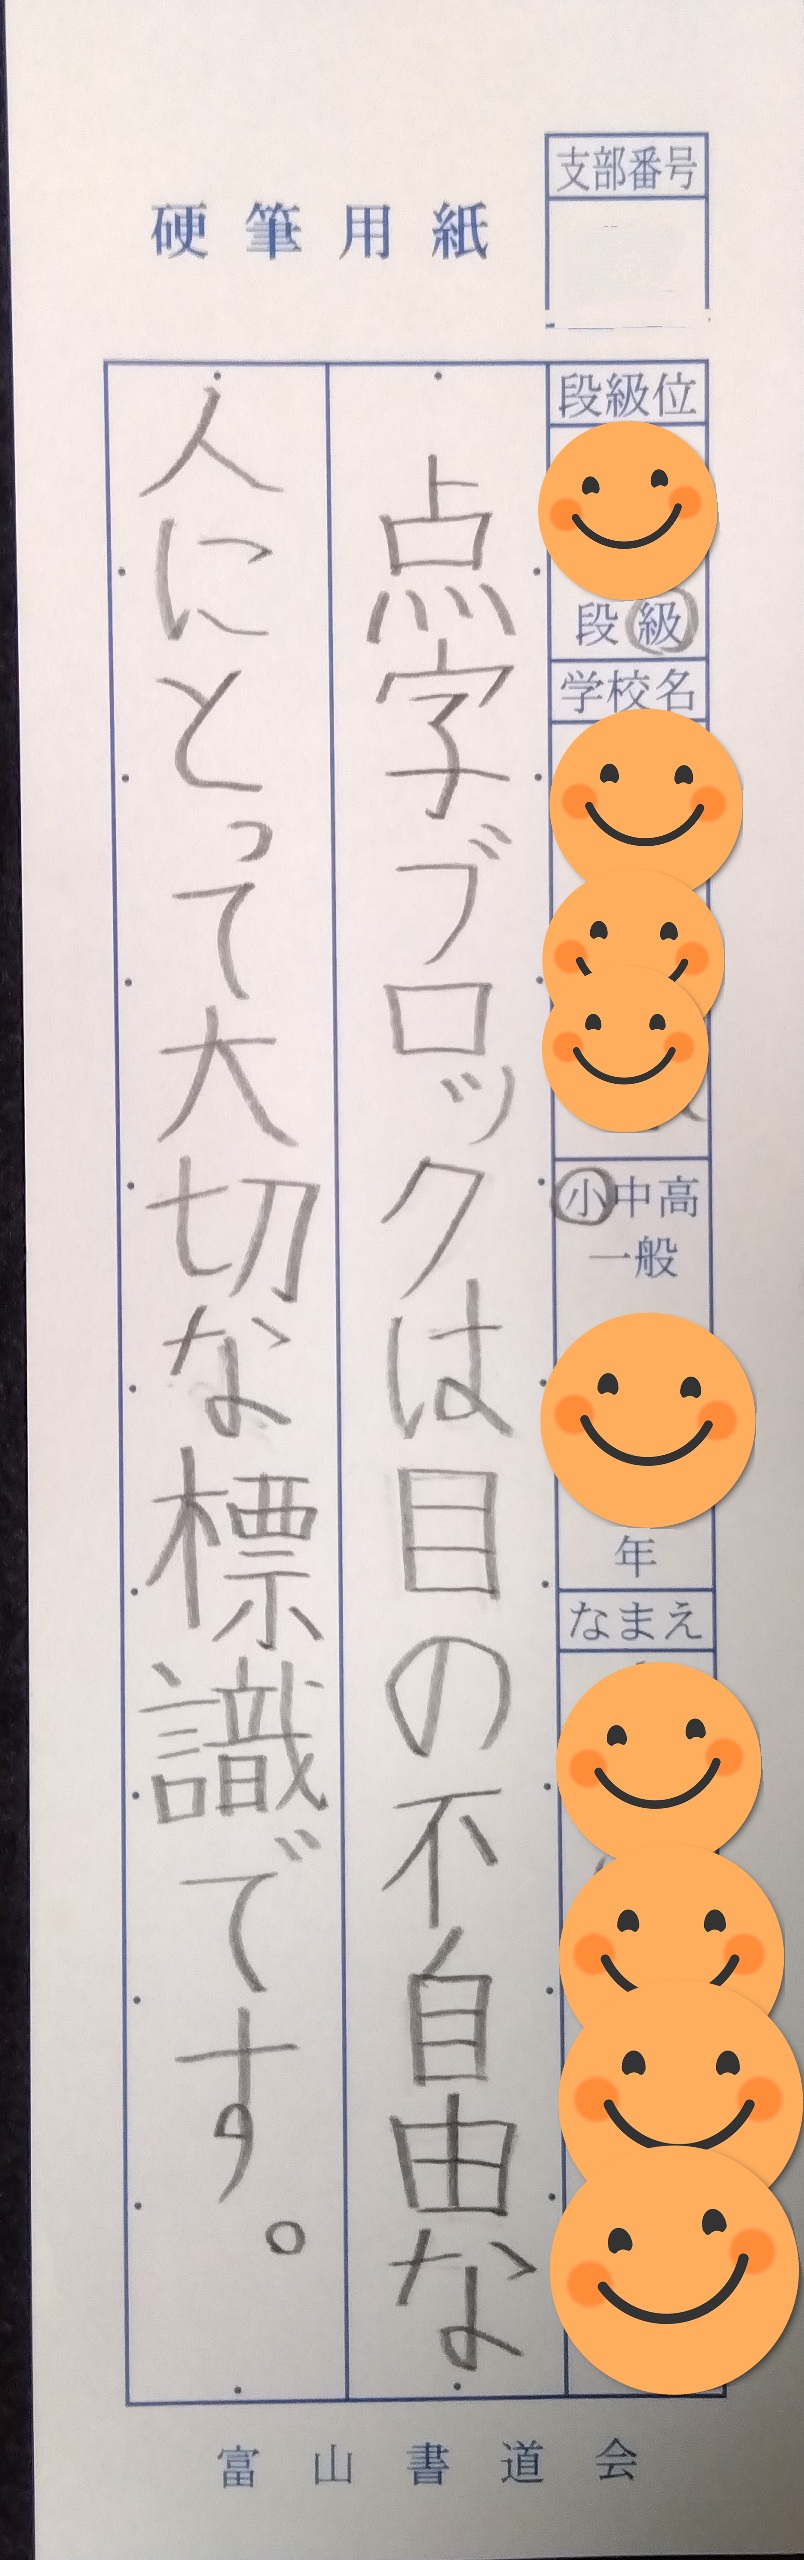 硬筆用紙
支部番号
段級位
段級
学校名
小中高
一般
年
なまえ
点字ブロックは目の不自由な
人にとって大切な標識です。
富山書道会